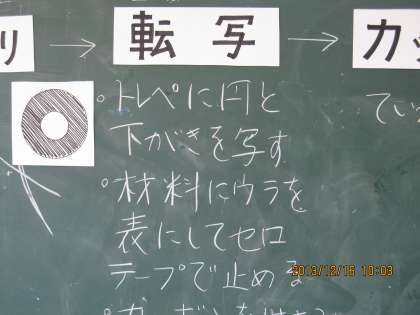 り → 転写 → カッ
。トレペに円と
下がきを写す
てい
。材料にウラを
表にしてセロ
テープで止める
2013/12/16 10:03